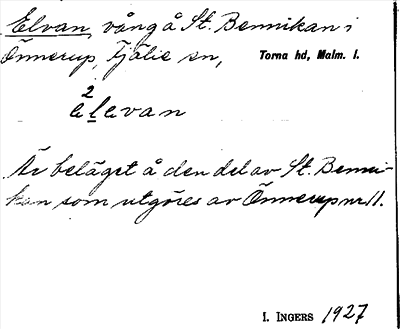 Elvan, vång å St. Bennikan i
Önnerup, Fjälie sn, Torna hd, Malm. l.
2
èlevan
Är beläget å den del av St. Benni-
kan som utgöres av Önnerup nr 11.
I. INGERS 1927